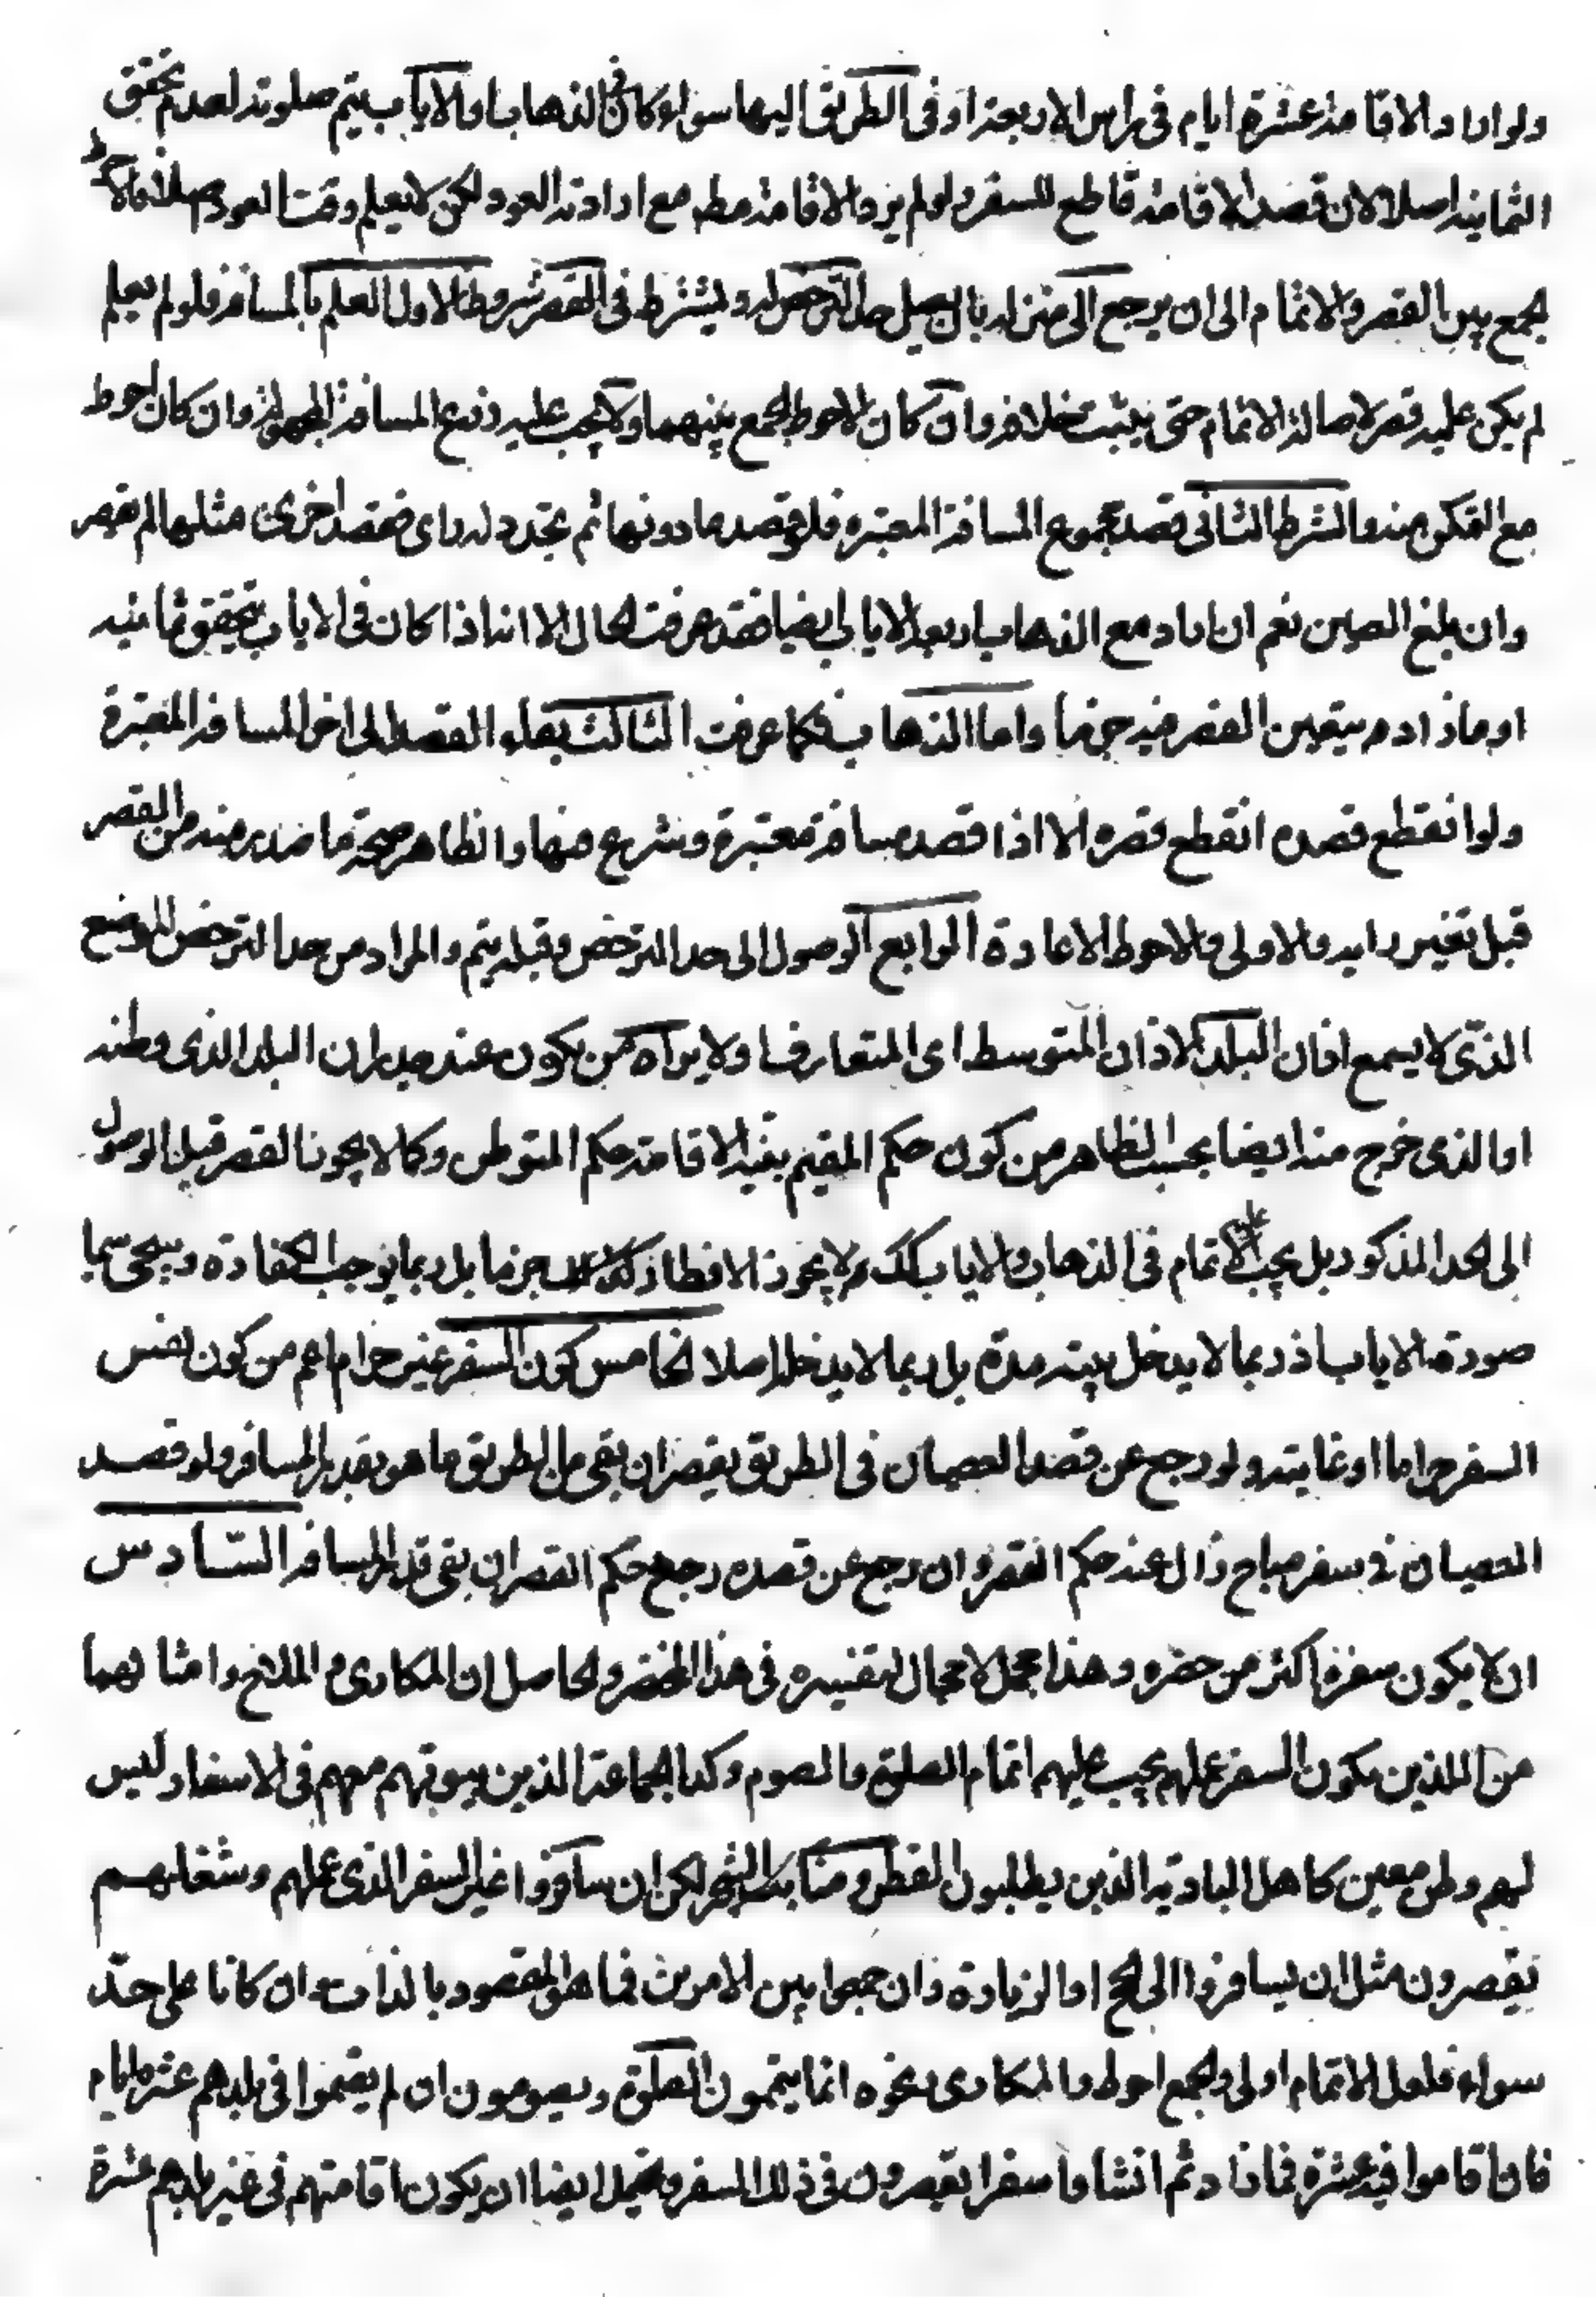 ولو اراد الاقامة عشرة ايام فى راس الاربعة او فى الطريق اليها سواء كان فى الذهاب او الاياب يتم صلوته لعدم تحقق
الثمانية اصلا لان قصد الاقامة قاطع للسفر ولو لم يرد الاقامة مطم مع ارادته العود لكن لا يعلم وقت العود اصلا فالاحوط
يجمع بين القصر والاتمام الى ان يرجع الى منزله بان يصل حد الترخص له ويشترط فى القصر شروط الاول العلم بالمسافة فلو لم يعلم
لم يكن عليه قصر لاصالة الاتمام حتى يثبت خلافه وان كان الاحوط الجمع بينهما ولا يجب عليه ذرع المسافة المجهولة وان كان احوط
مع التمكن منه والشرط الثانى قصد مجموع المسافة المعتبرة فلو قصد ما دونها ثم تجدد له راى فقصد اخرى مثلها لم يقصر
وان بلغ الصين نعم ان اراد مع الذهاب اربعة الاياب ايضا فقد عرفت الحال الا انه اذا كان فى الاياب يتحقق ثمانية
او ما زاد يتعين القصر فيه جزما واما الذهاب فكما عرفت الثالث بقاء القصد الى اخر المسافة المعتبرة
ولو انقطع قصده انقطع قصره الا اذا قصد مسافة معتبرة وشرع فيها والظاهر صحة ما صدر منه من القصر
قبل تغير رايه والاولى والاحوط الاعادة الرابع الوصول الى حد الترخص وقبله يتم والمراد من حد الترخص الموضع
الذى لا يسمع اذان البلد الاذان المتوسط اى المتعارف ولا يراه من يكون عند جدران البلد الذى وطنه
او الذى خرج منه ايضا بحسب الظاهر من كون حكم المقيم بنية الاقامة حكم المتوطن وكما لا يجوز القصر قبل الوصول
الى الحد المذكور بل يجب الاتمام فى الذهاب والاياب كك لا يجوز الافطار كذلك جزما بل ربما يوجب الكفارة ويجئ سيما
صورة الاياب اذ ربما لا يدخل بيته مدة بل ربما لا يدخل اصلا الخامس كون السفر غير حرام اعم من كون نفس
السفر حراما او غايته ولو رجع عن قصد العصيان فى الطريق يقصر ان بقى من الطريق ما هو بقدر المسافة ولو قصد
العصيان فى سفر مباح زال عنه حكم القصر وان رجع عن قصده رجع حكم القصر ان بقى قدر المسافة السّادس
ان لا يكون سفره اكثر من حضره وهذا مجمل لا مجال لتفسيره فى هذا المختصر والحاصل ان المكارى والملاح وامثالهما
من الذين يكون السفر عملهم يجب عليهم اتمام الصلوة والصوم وكذا الجماعة الذين بيوتهم معهم فى الاسفار وليس
لهم وطن معين كاهل البادية الذين يطلبون القطر ومنابت الشجر لكن ان سافروا غير السفر الذى عملهم وشغلهم
يقصرون مثل ان يسافروا الى الحج او الزيارة وان جمعوا بين الامرين فما هو المقصود بالذات وان كانا على حدّ
سواء فلعل الاتمام اولى والجمع احوط والمكارى ونحوه انما يتمون الصلوة ويصومون ان لم يقيموا فى بلدهم عشرة ايام
فان اقاموا فيه عشرة فما زاد ثم انشاوا سفرا يقصرون فى ذلك السفر ويحتمل ايضا ان يكون اقامتهم فى غير بلدهم عشرة